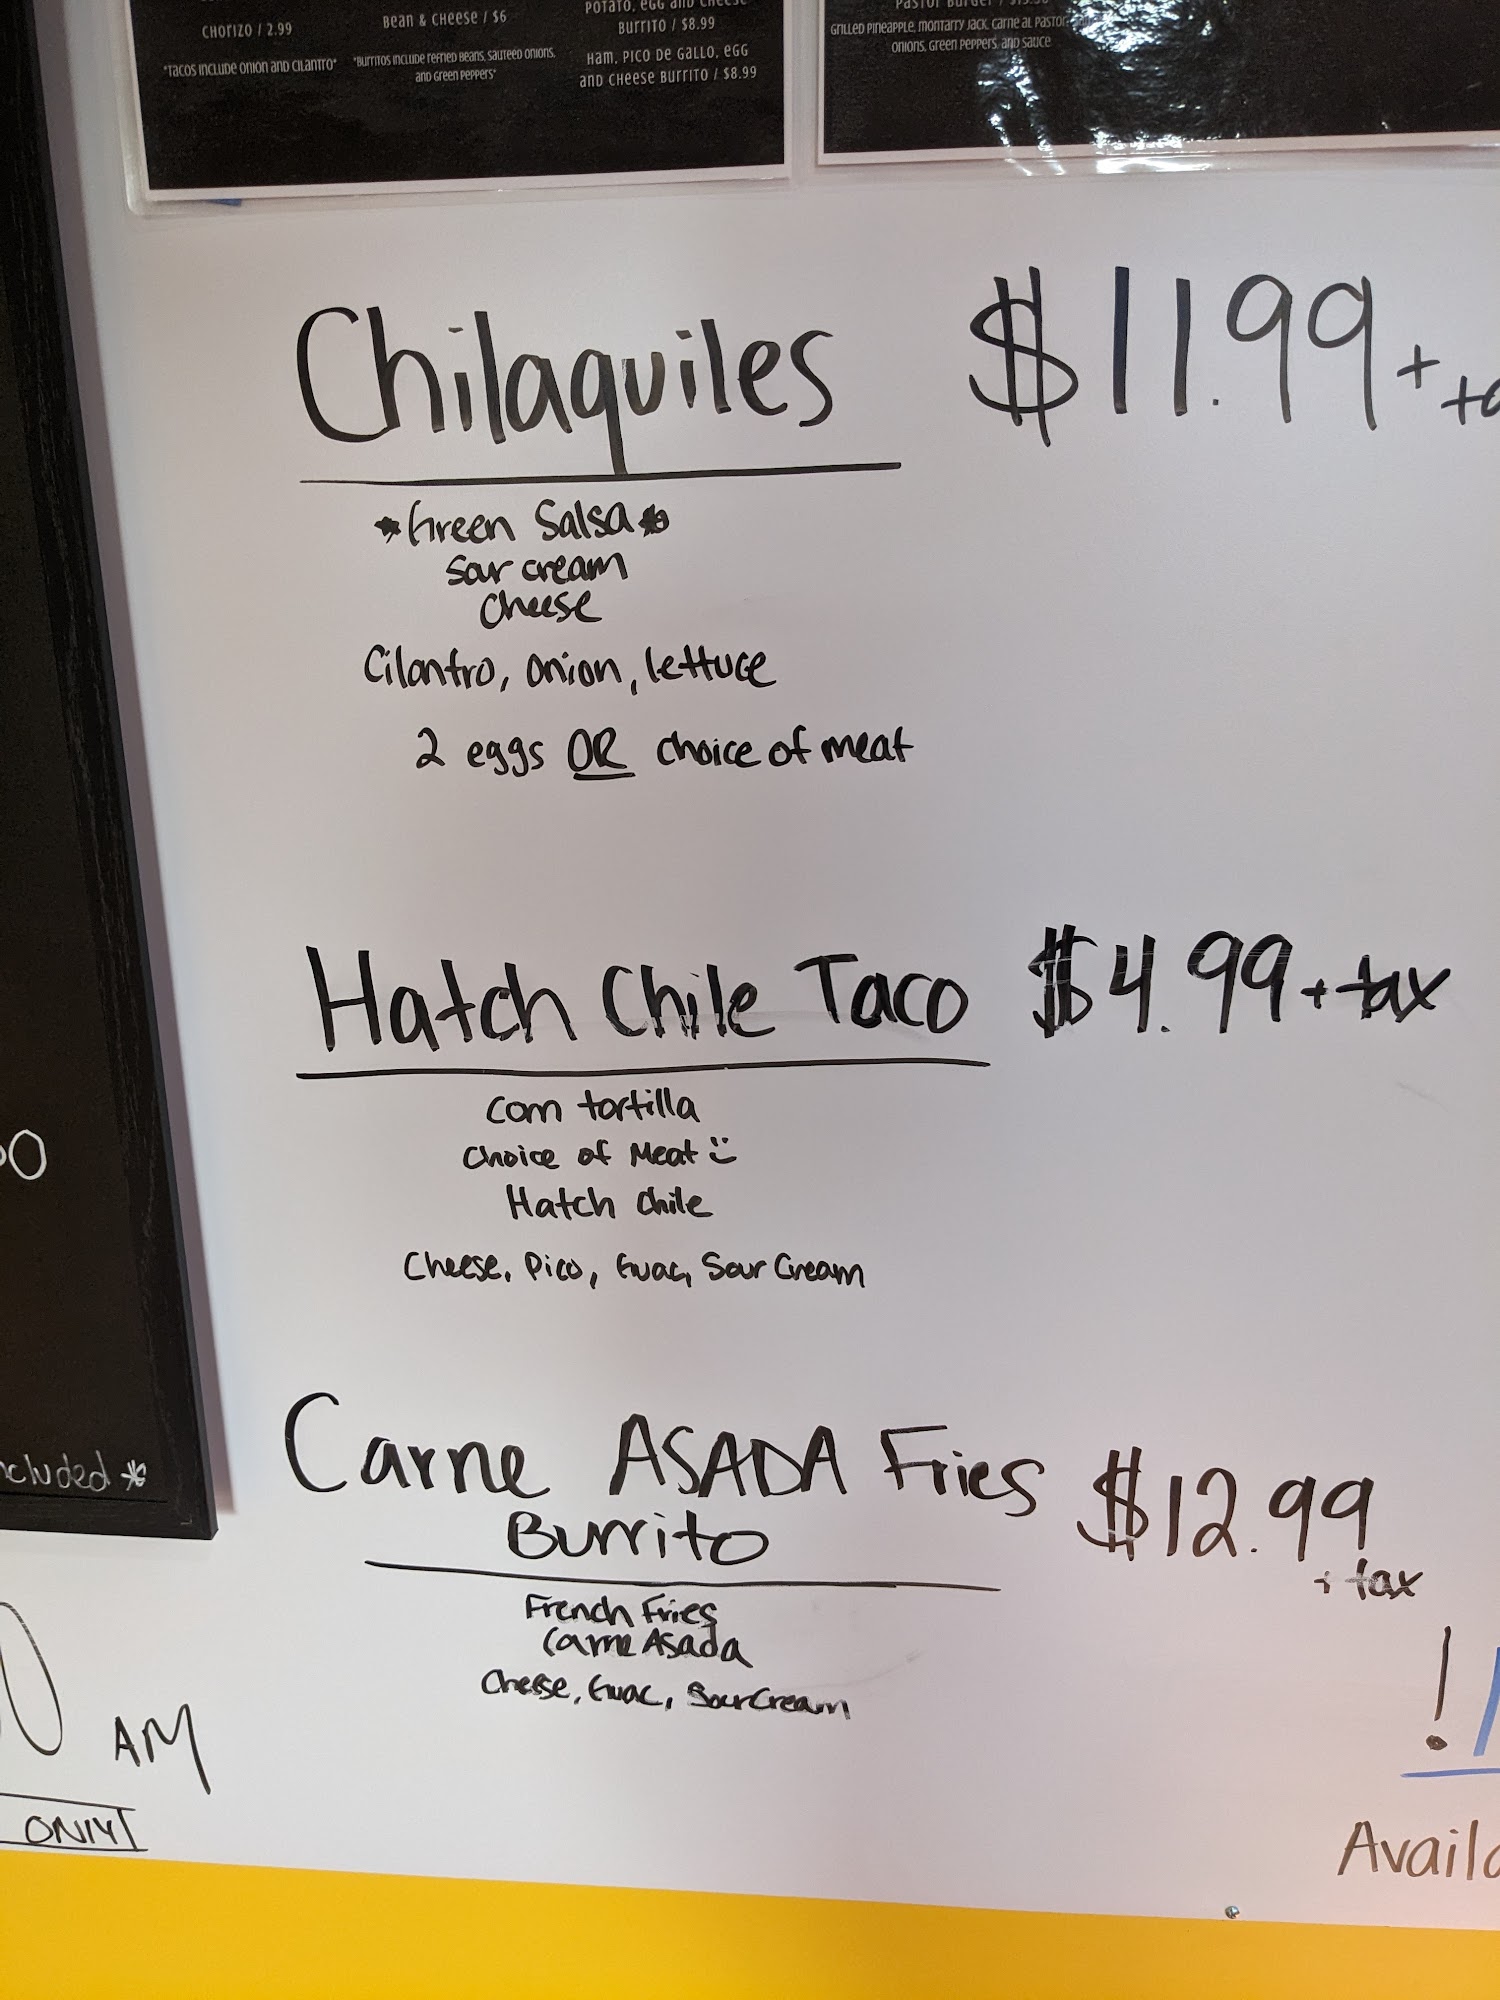 CHORIZO / 2.99
*TACOS INCLUDE ONION AND CILANTRO*
BEAN & CHEESE / $6
*BURRITOS INCLUDE REFRIED BEANS, SAUTEED ONIONS,
AND GREEN PEPPERS*
POTATO, EGG AND CHEESE
BURRITO / $8.99
HAM, PICO DE GALLO, EGG
AND CHEESE BURRITO / $8.99
PASTOR BURGER /
GRILLED PINEAPPLE, MONTARRY JACK, CARNE AL PASTOR,
ONIONS, GREEN PEPPERS, AND SAUCE
Chilaquiles $11.99 +
*Green Salsa*
Sour cream
Cheese
Cilantro, onion, lettuce
2 eggs OR choice of meat
Hatch Chile Taco $4.99 + tax
corn tortilla
Choice of Meat :)
Hatch chile
Cheese, Pico, Guac, Sour Cream
Carne ASADA Fries $12.99
Burrito + tax
French Fries
Carne Asada
Cheese, Guac, Sour Cream
AM
ONLY!
!